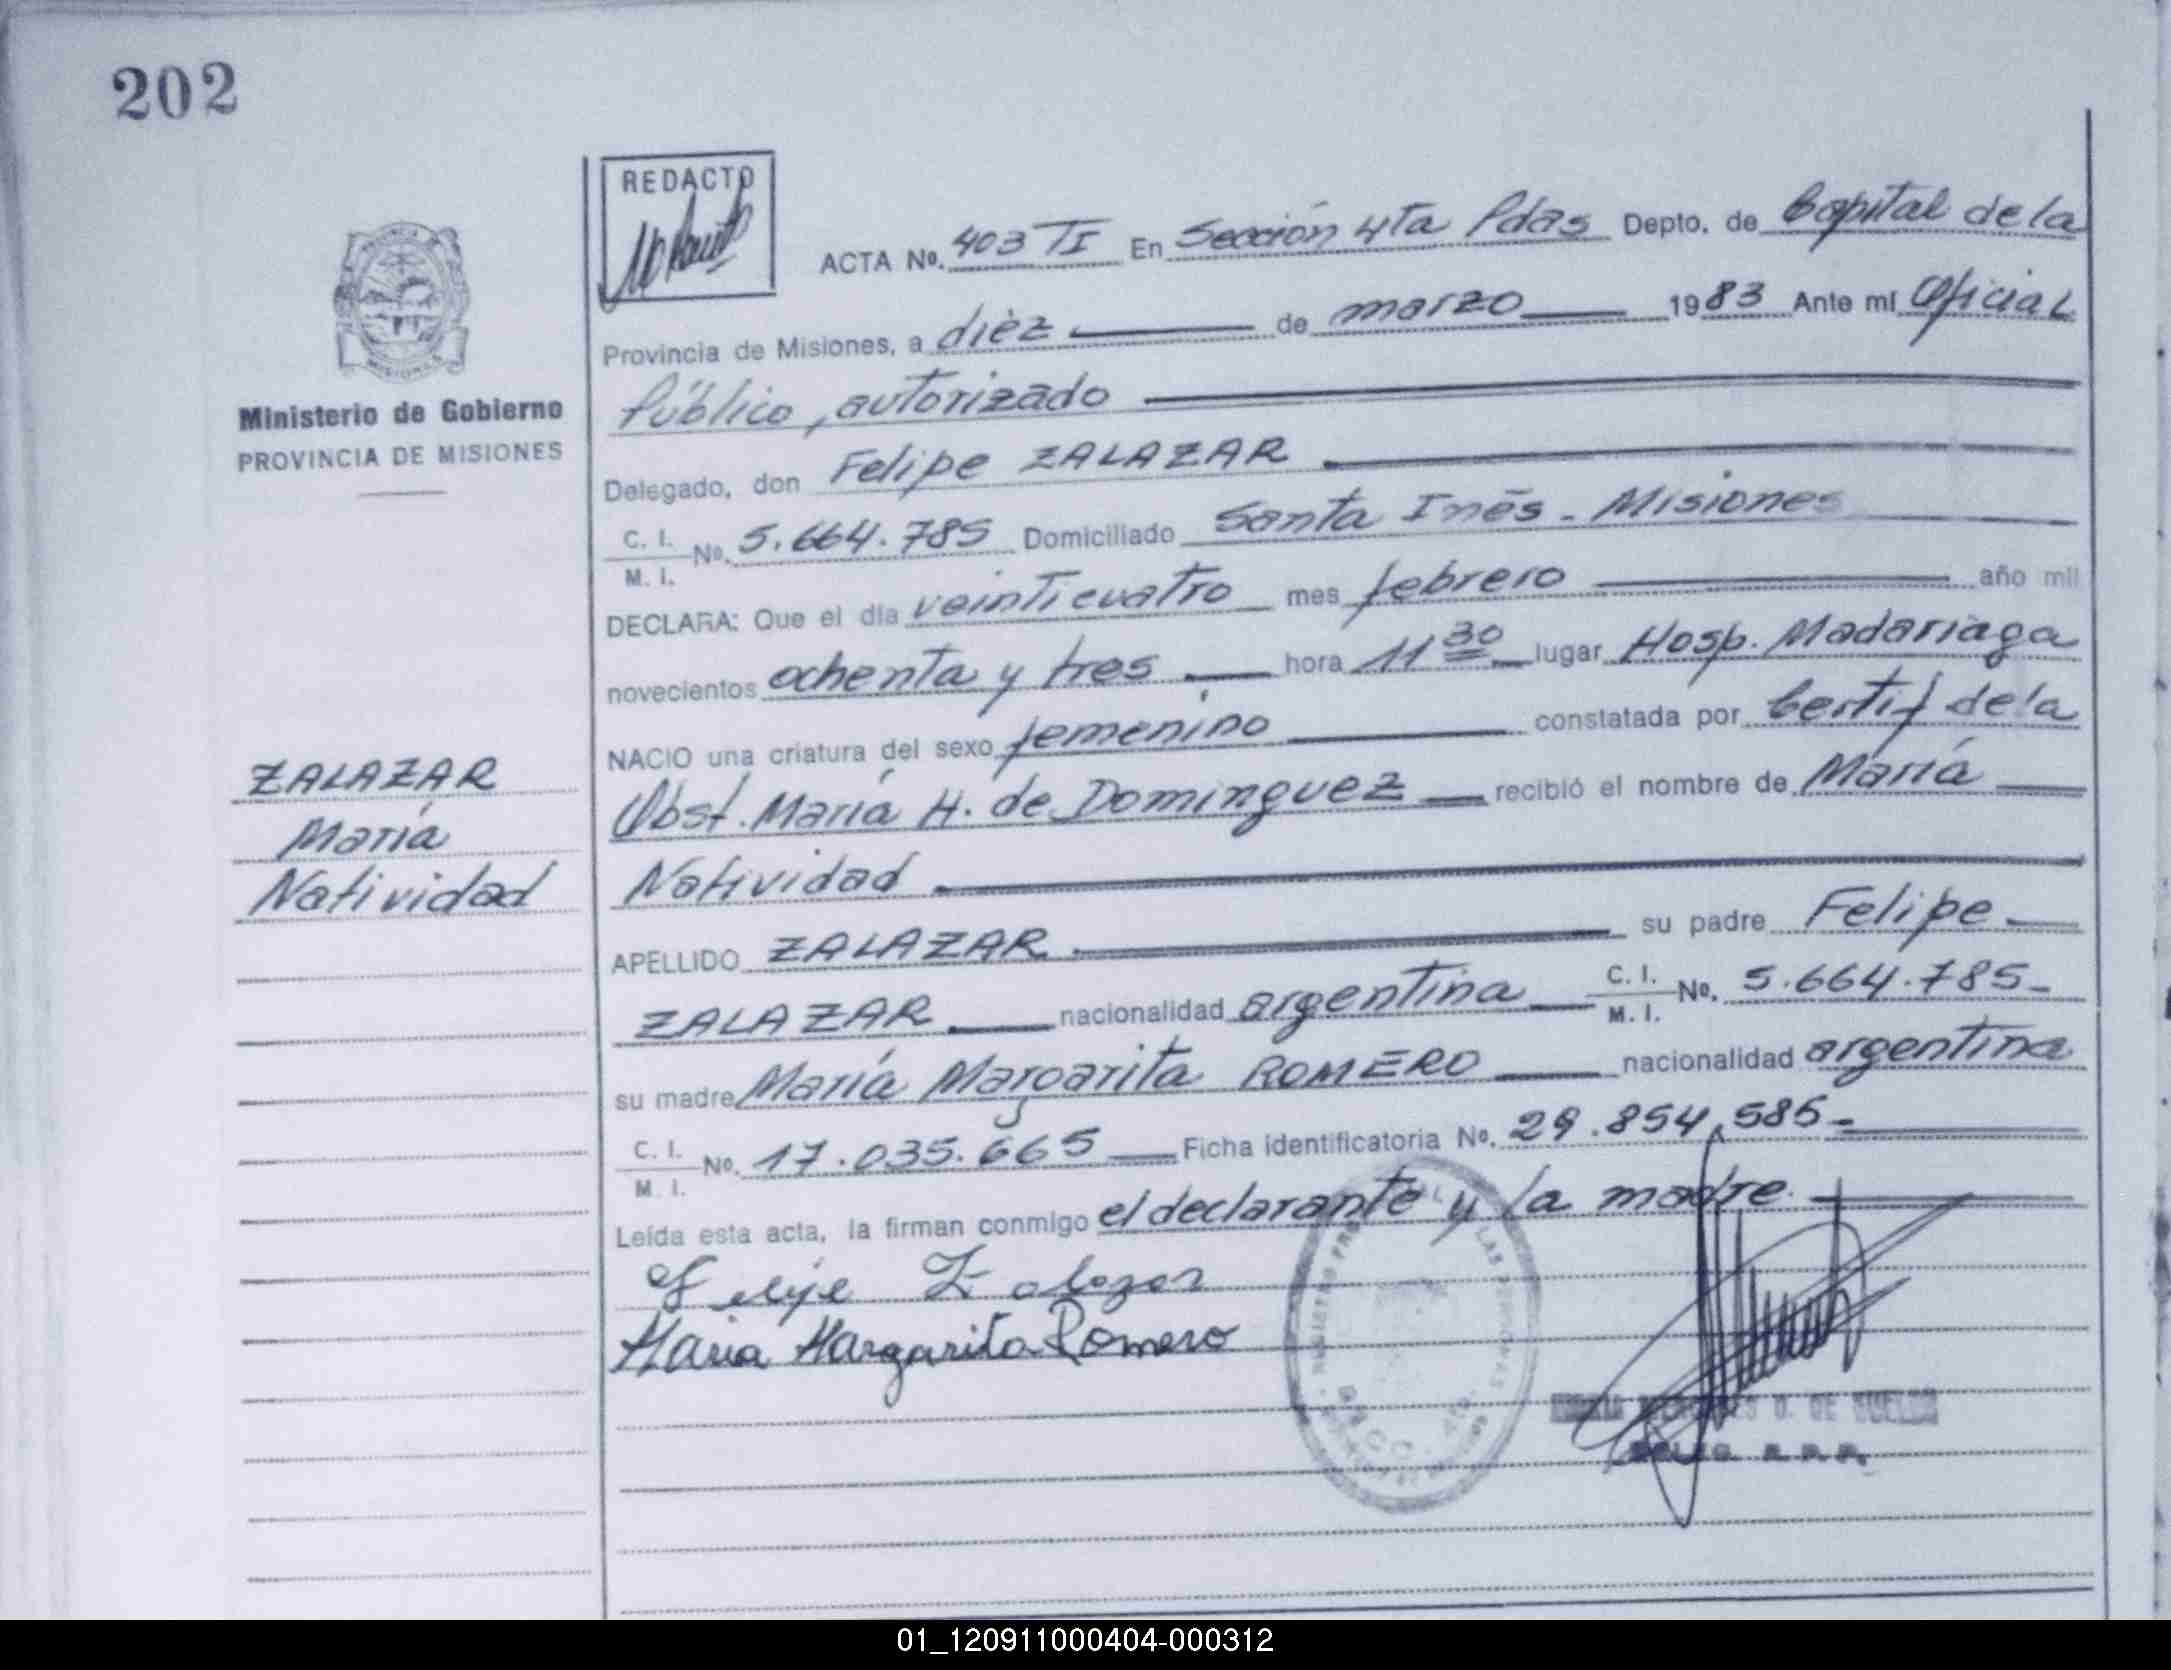 202
REDACTO
ACTA No. 403 TI En Sección 4ta Pdas Depto. de Capital de la
Provincia de Misiones, a diez de marzo 1983 Ante mí Oficial
Público, autorizado
Ministerio de Gobierno
PROVINCIA DE MISIONES
Delegado, don Felipe ZALAZAR
C. I. M. I. No. 5.664.785 Domiciliado Santa Inés - Misiones
DECLARA: Que el día veinticuatro mes febrero año mil
novecientos ochenta y tres hora 11 30 lugar Hosp. Madariaga
NACIO una criatura del sexo femenino constatada por Certif de la
ZALAZAR
María
Natividad
Obst. María H. de Dominguez recibió el nombre de María
Natividad
APELLIDO ZALAZAR su padre Felipe
ZALAZAR nacionalidad argentina C. I. M. I. No. 5.664.785-
su madre María Margarita ROMERO nacionalidad argentina
C. I. M. I. No. 17.035.665 Ficha identificatoria No. 29.854.585-
Leída esta acta, la firman conmigo el declarante y la madre.
Felipe Zalazar
Maria Margarita Romero
01_120911000404-000312